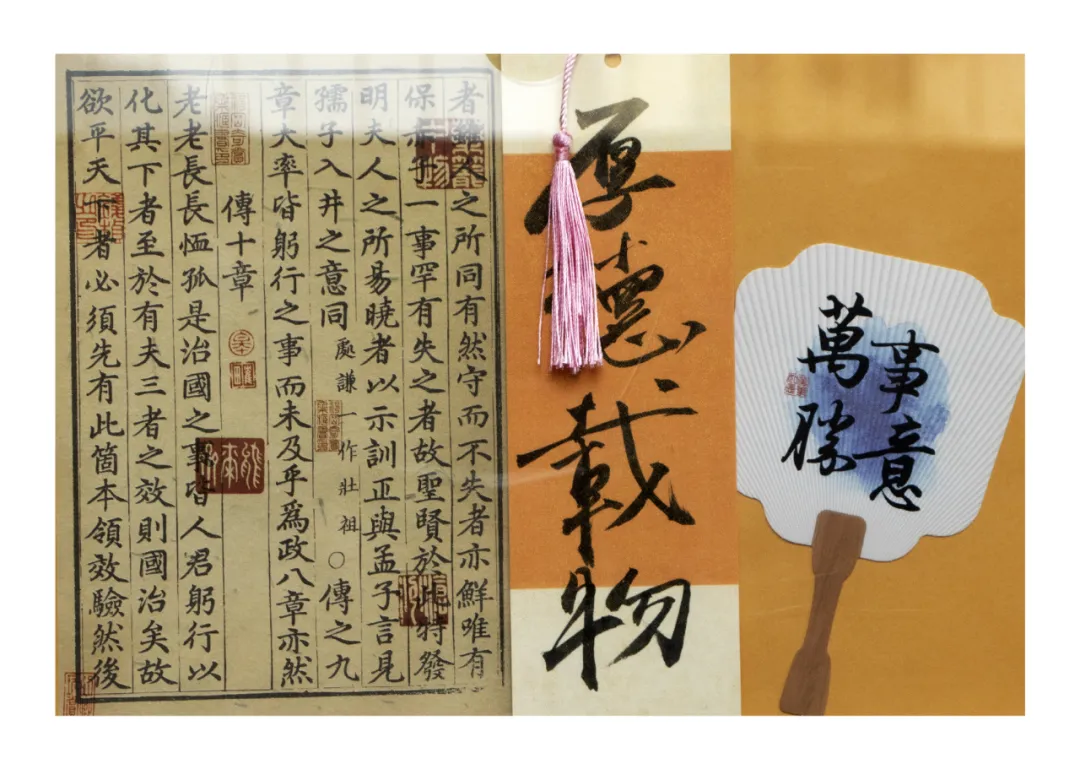 者雖人之所同有然守而不失者亦鮮唯有
保赤子一事罕有失之者故聖賢於此特發
明夫人之所易曉者以示訓正與孟子言見
孺子入井之意同處謙一作壯祖○傳之九
章大率皆躬行之事而未及乎爲政八章亦然
傳十章
老老長長恤孤是治國之事皆人君躬行以
化其下者至於有夫三者之效則國治矣故
欲平天下者必須先有此箇本領效驗然後
厚德載物
萬事
勝意